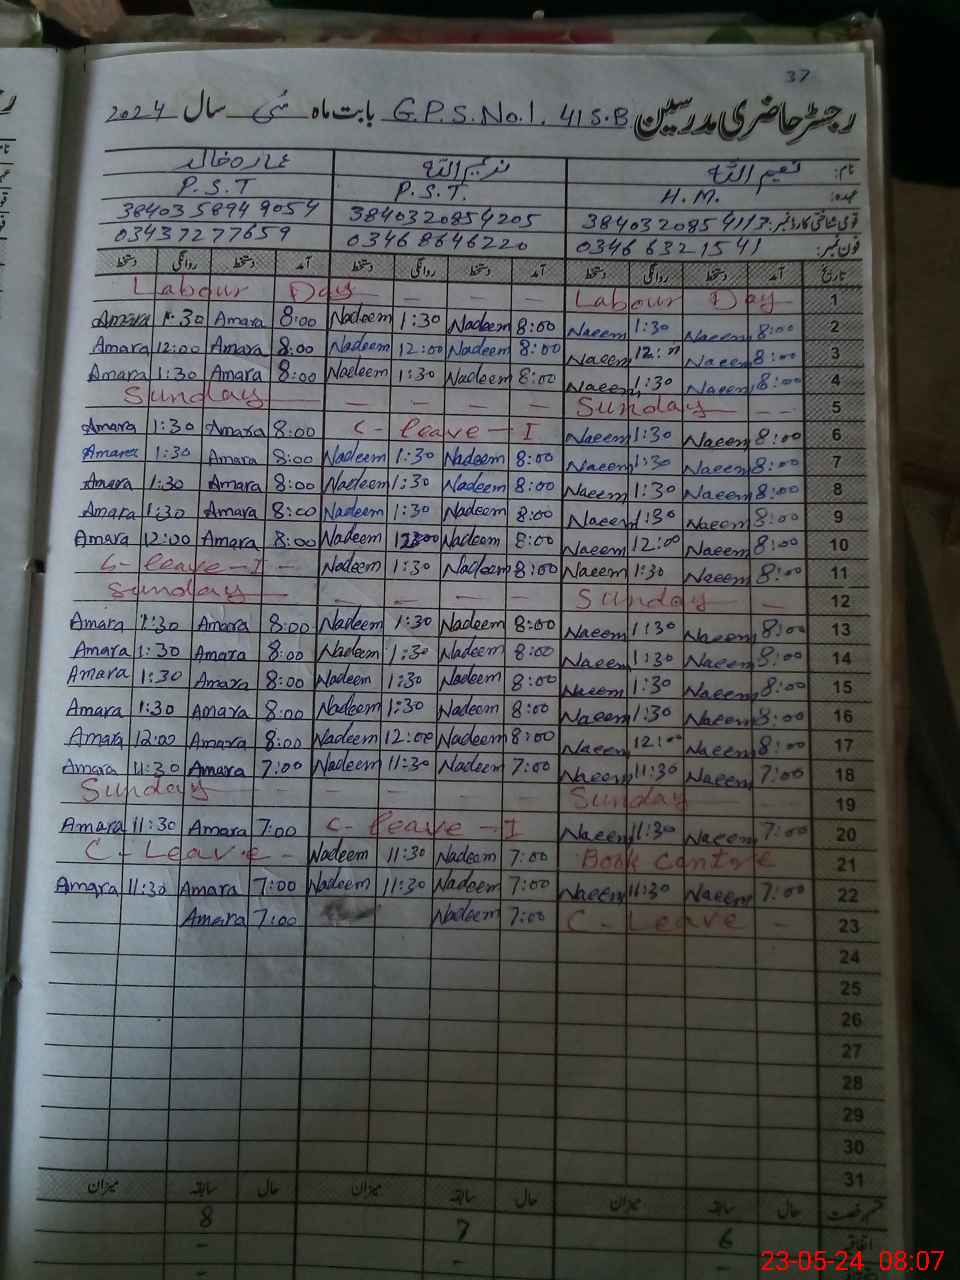 37
رجسٹر حاضری مدرسین G.P.S. No.1. 41 S.B بابت ماہ مئی سال 2024
نام: نعیم اللہ ندیم اللہ عمارہ خالد
عہدہ: H.M. P.S.T. P.S.T
قومی شناختی کارڈ نمبر: 3840320854113 3840320854205 3840358949054
فون نمبر: 03466321541 03468646220 03437277659
تاریخ آمد دستخط روانگی دستخط آمد دستخط روانگی دستخط آمد دستخط روانگی دستخط
1 Labour Day — — — — Labour Day
2 8:00 Naeem 1:30 Naeem 8:00 Nadeem 1:30 Nadeem 8:00 Amara 1:30 Amara
3 8:00 Naeem 12:00 Naeem 8:00 Nadeem 12:00 Nadeem 8:00 Amara 12:00 Amara
4 8:00 Naeem 1:30 Naeem 8:00 Nadeem 1:30 Nadeem 8:00 Amara 1:30 Amara
5 Sunday — — — — — Sunday
6 8:00 Naeem 1:30 Naeem C- leave - I 8:00 Amara 1:30 Amara
7 8:00 Naeem 1:30 Naeem 8:00 Nadeem 1:30 Nadeem 8:00 Amara 1:30 Amara
8 8:00 Naeem 1:30 Naeem 8:00 Nadeem 1:30 Nadeem 8:00 Amara 1:30 Amara
9 8:00 Naeem 1:30 Naeem 8:00 Nadeem 1:30 Nadeem 8:00 Amara 1:30 Amara
10 8:00 Naeem 12:00 Naeem 8:00 Nadeem 12:00 Nadeem 8:00 Amara 12:00 Amara
11 8:00 Naeem 1:30 Naeem 8:00 Nadeem 1:30 Nadeem C- leave - I -
12 Sunday — — — — — Sunday
13 8:00 Naeem 1:30 Naeem 8:00 Nadeem 1:30 Nadeem 8:00 Amara 1:30 Amara
14 8:00 Naeem 1:30 Naeem 8:00 Nadeem 1:30 Nadeem 8:00 Amara 1:30 Amara
15 8:00 Naeem 1:30 Naeem 8:00 Nadeem 1:30 Nadeem 8:00 Amara 1:30 Amara
16 8:00 Naeem 1:30 Naeem 8:00 Nadeem 1:30 Nadeem 8:00 Amara 1:30 Amara
17 8:00 Naeem 12:00 Naeem 8:00 Nadeem 12:00 Nadeem 8:00 Amara 12:00 Amara
18 7:00 Naeem 11:30 Naeem 7:00 Nadeem 11:30 Nadeem 7:00 Amara 11:30 Amara
19 Sunday — — — — — Sunday
20 7:00 Naeem 11:30 Naeem C- leave - I 7:00 Amara 11:30 Amara
21 Book Centre 7:00 Nadeem 11:30 Nadeem C- Leave -
22 7:00 Naeem 11:30 Naeem 7:00 Nadeem 11:30 Nadeem 7:00 Amara 11:30 Amara
23 C- Leave - 7:00 Nadeem 7:00 Amara
24
25
26
27
28
29
30
31
قسم رخصت حال سابقہ میزان حال سابقہ میزان حال سابقہ میزان
اتفاقیہ 6 7 8
- - -
23-05-24 08:07